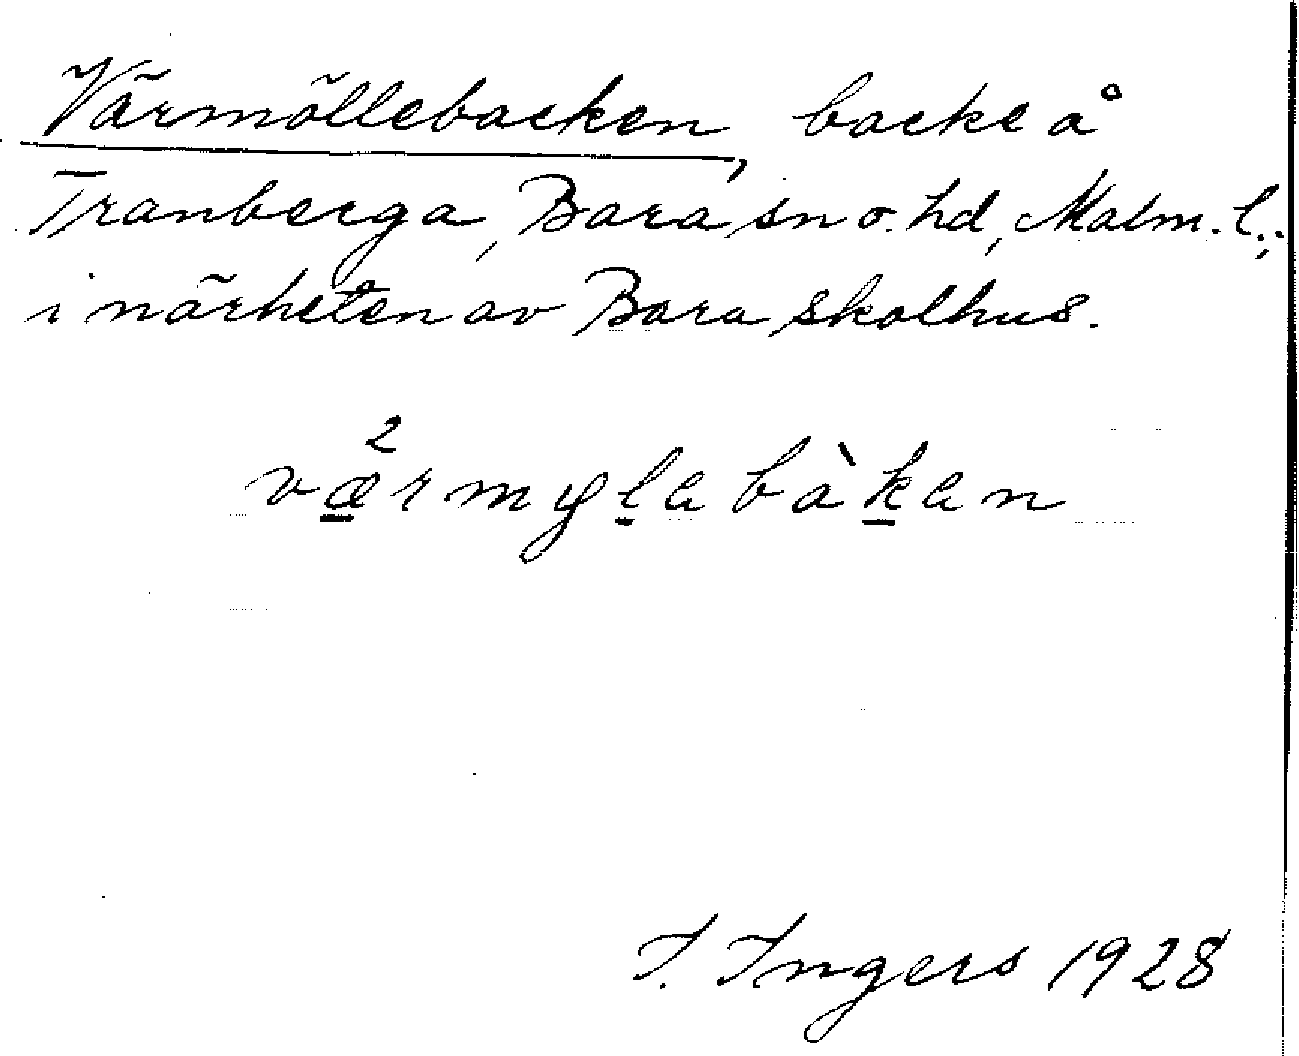 Värmöllebacken, backe å
Tranberga, Bara sn o. hd, Malm. l.;
i närheten av Bara skolhus.
væ²rmyḻa bàḵan
I. Ingers 1928